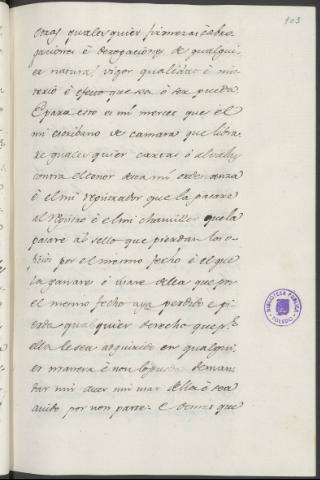 103
otras quales quier firmezas é abro
gaciones é derogaciones de qualqui
er natura, vigor qualidad é mis
terio é efecto que sea ó ser pueda
E para esto es mi merced que el
mi escribano de camara que libra
re quales quier cartas ó alvalaes
contra el tenor desta mi ordenanza
é el mi registrador que la pasare
al registro é el mi chanciller que la
pasare al sello que pierdan los o
ficios por el mismo fecho é el que
la ganare ó usare della que por
el mesmo fecho aya perdido é pi
erda qualquier derecho que por
ella le sea adquirido en qualqui
er manera é non lo pueda deman
dar nin aver nin usar della é sea
avido por non parte. E demas que
BIBLIOTECA PÚBLICA
TOLEDO